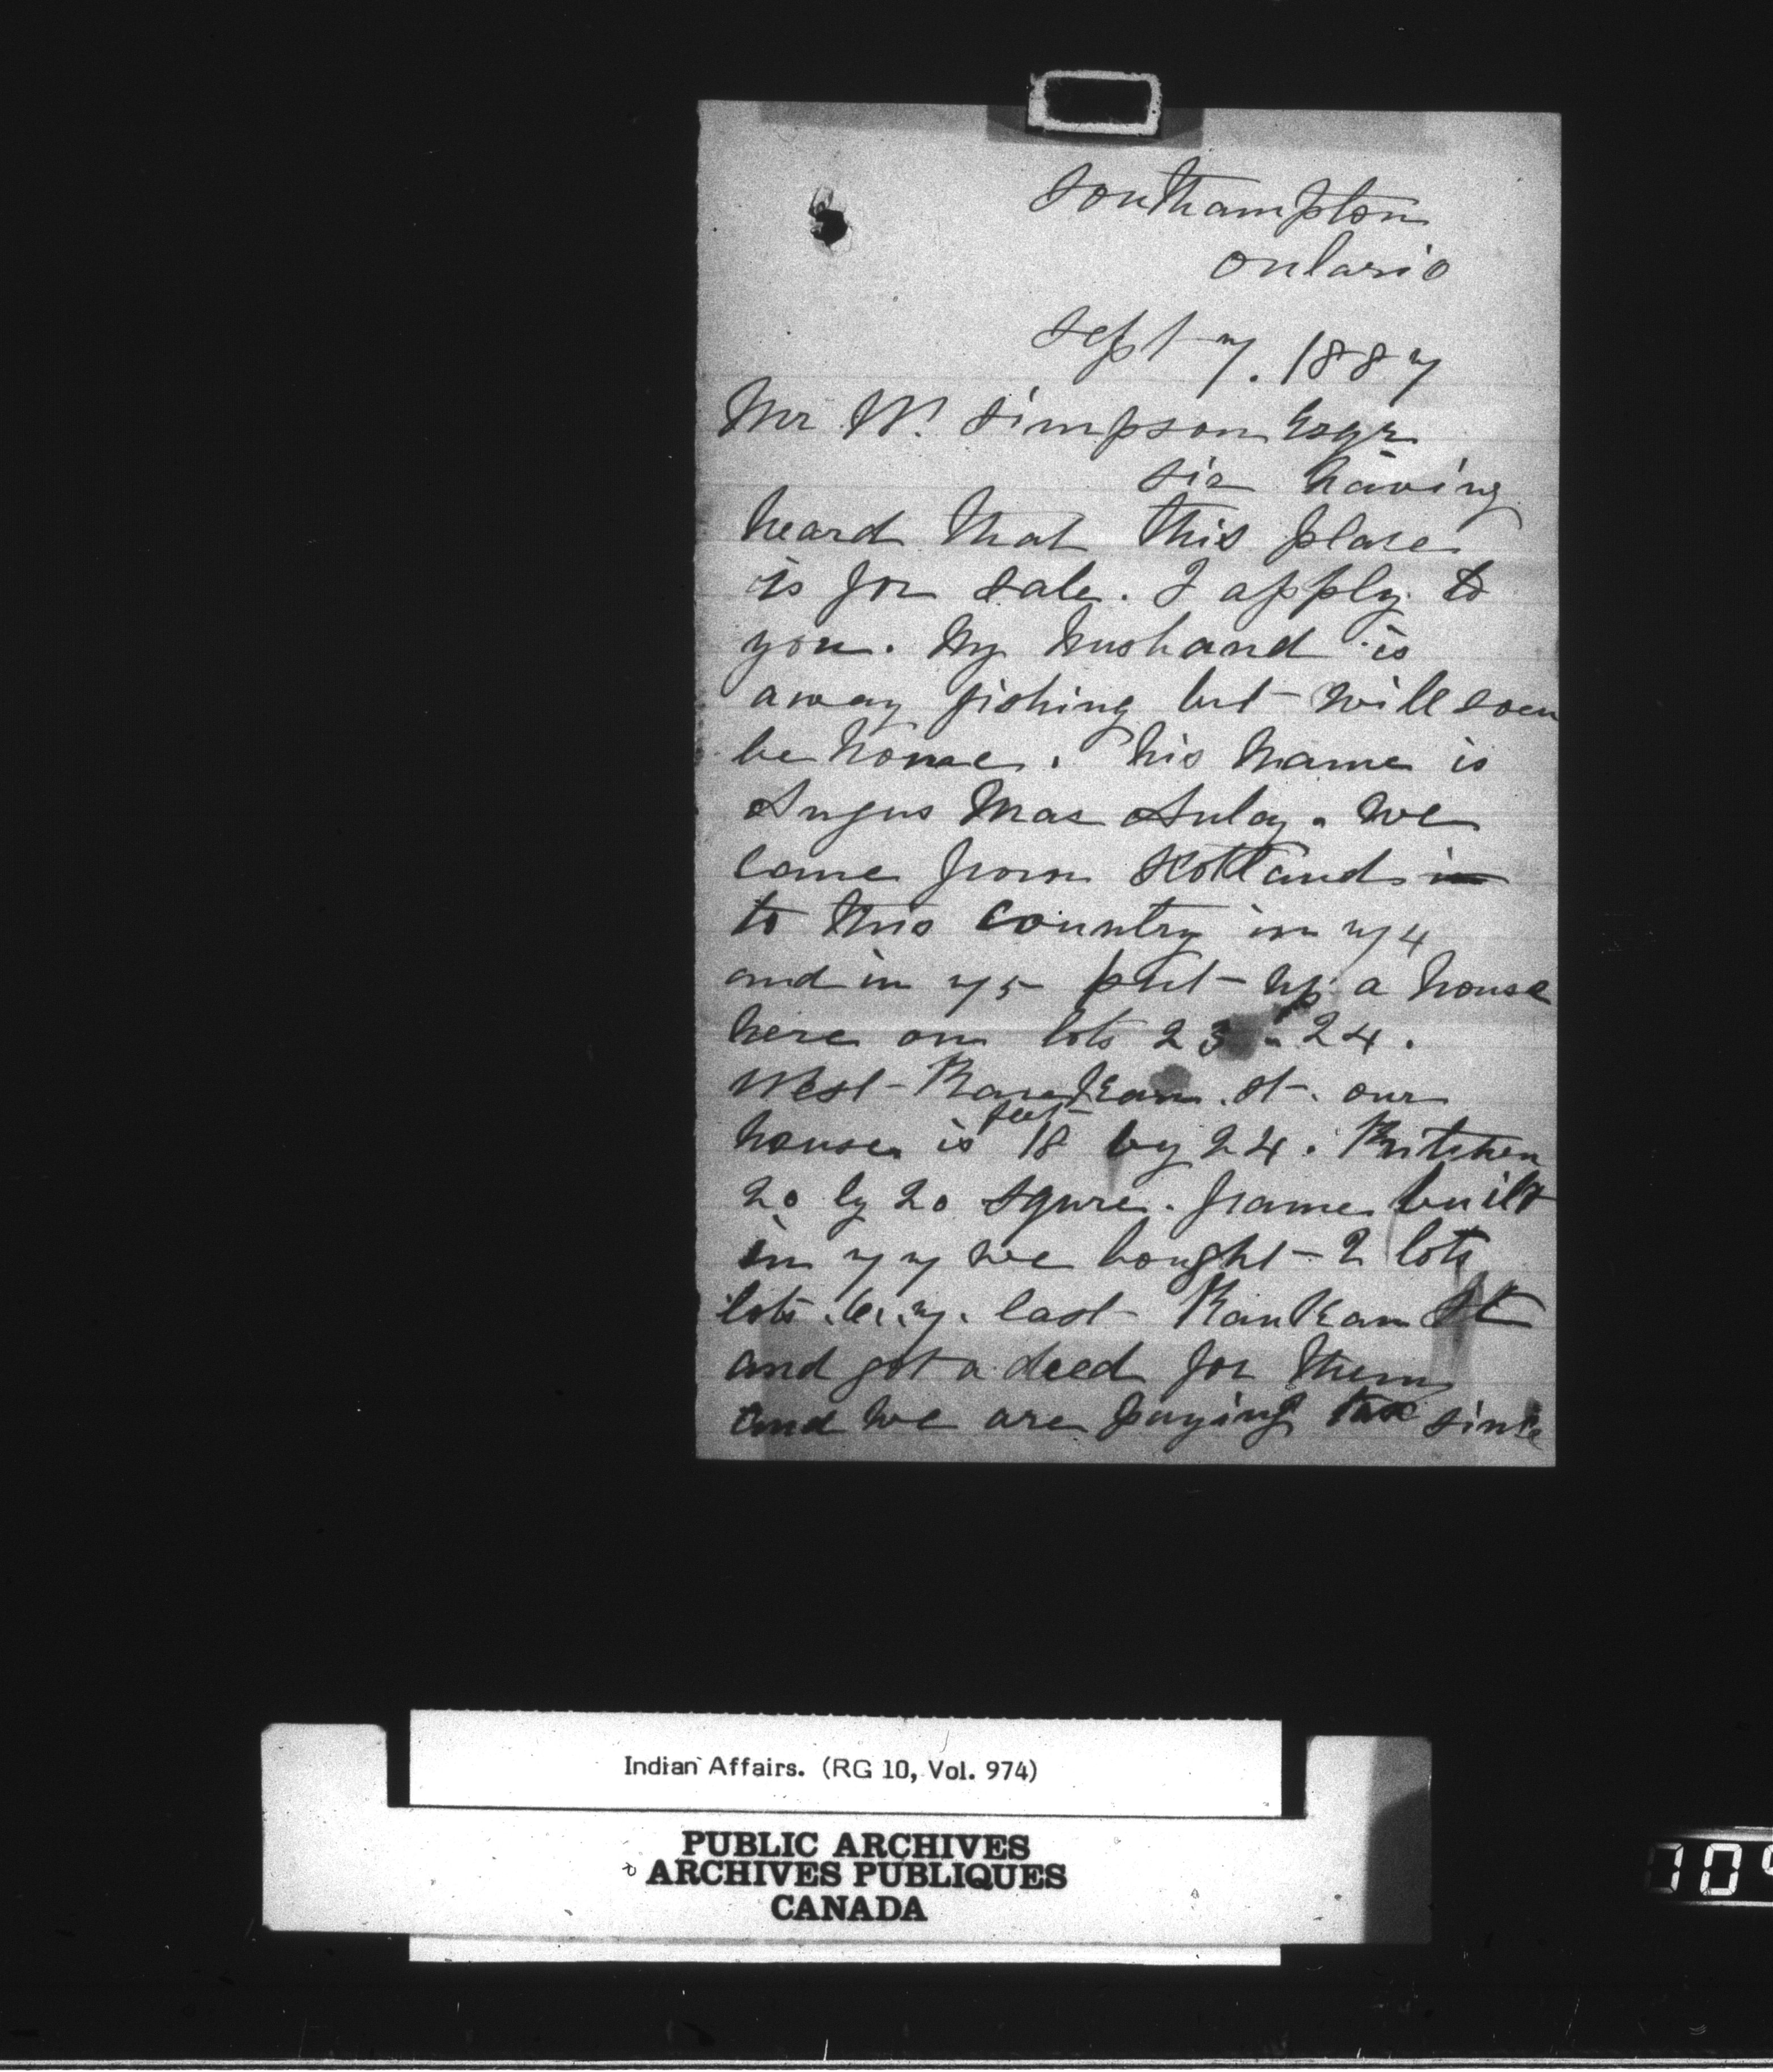 Southampton
Ontario
Sept 7. 1887
Mr W. Simpson Esqr
Sir having
heard that this place
is for sale. I apply to
you. My husband is
away fishing but will soon
be home. his name is
Angus Mac Aulay. we
came from Scotland in
to this country in 74
and in 75 put up a house
here on lots 23 . 24 .
West Rankan . st . our
house is feet 18 by 24 . Kitchen
20 by 20 squre . frame built
in 77 we bought 2 lots
lots . 6 . 7 . East Rankan St
and got a deed for them
and we are paying tax since
Indian Affairs. (RG 10, Vol. 974)
PUBLIC ARCHIVES
ARCHIVES PUBLIQUES
CANADA